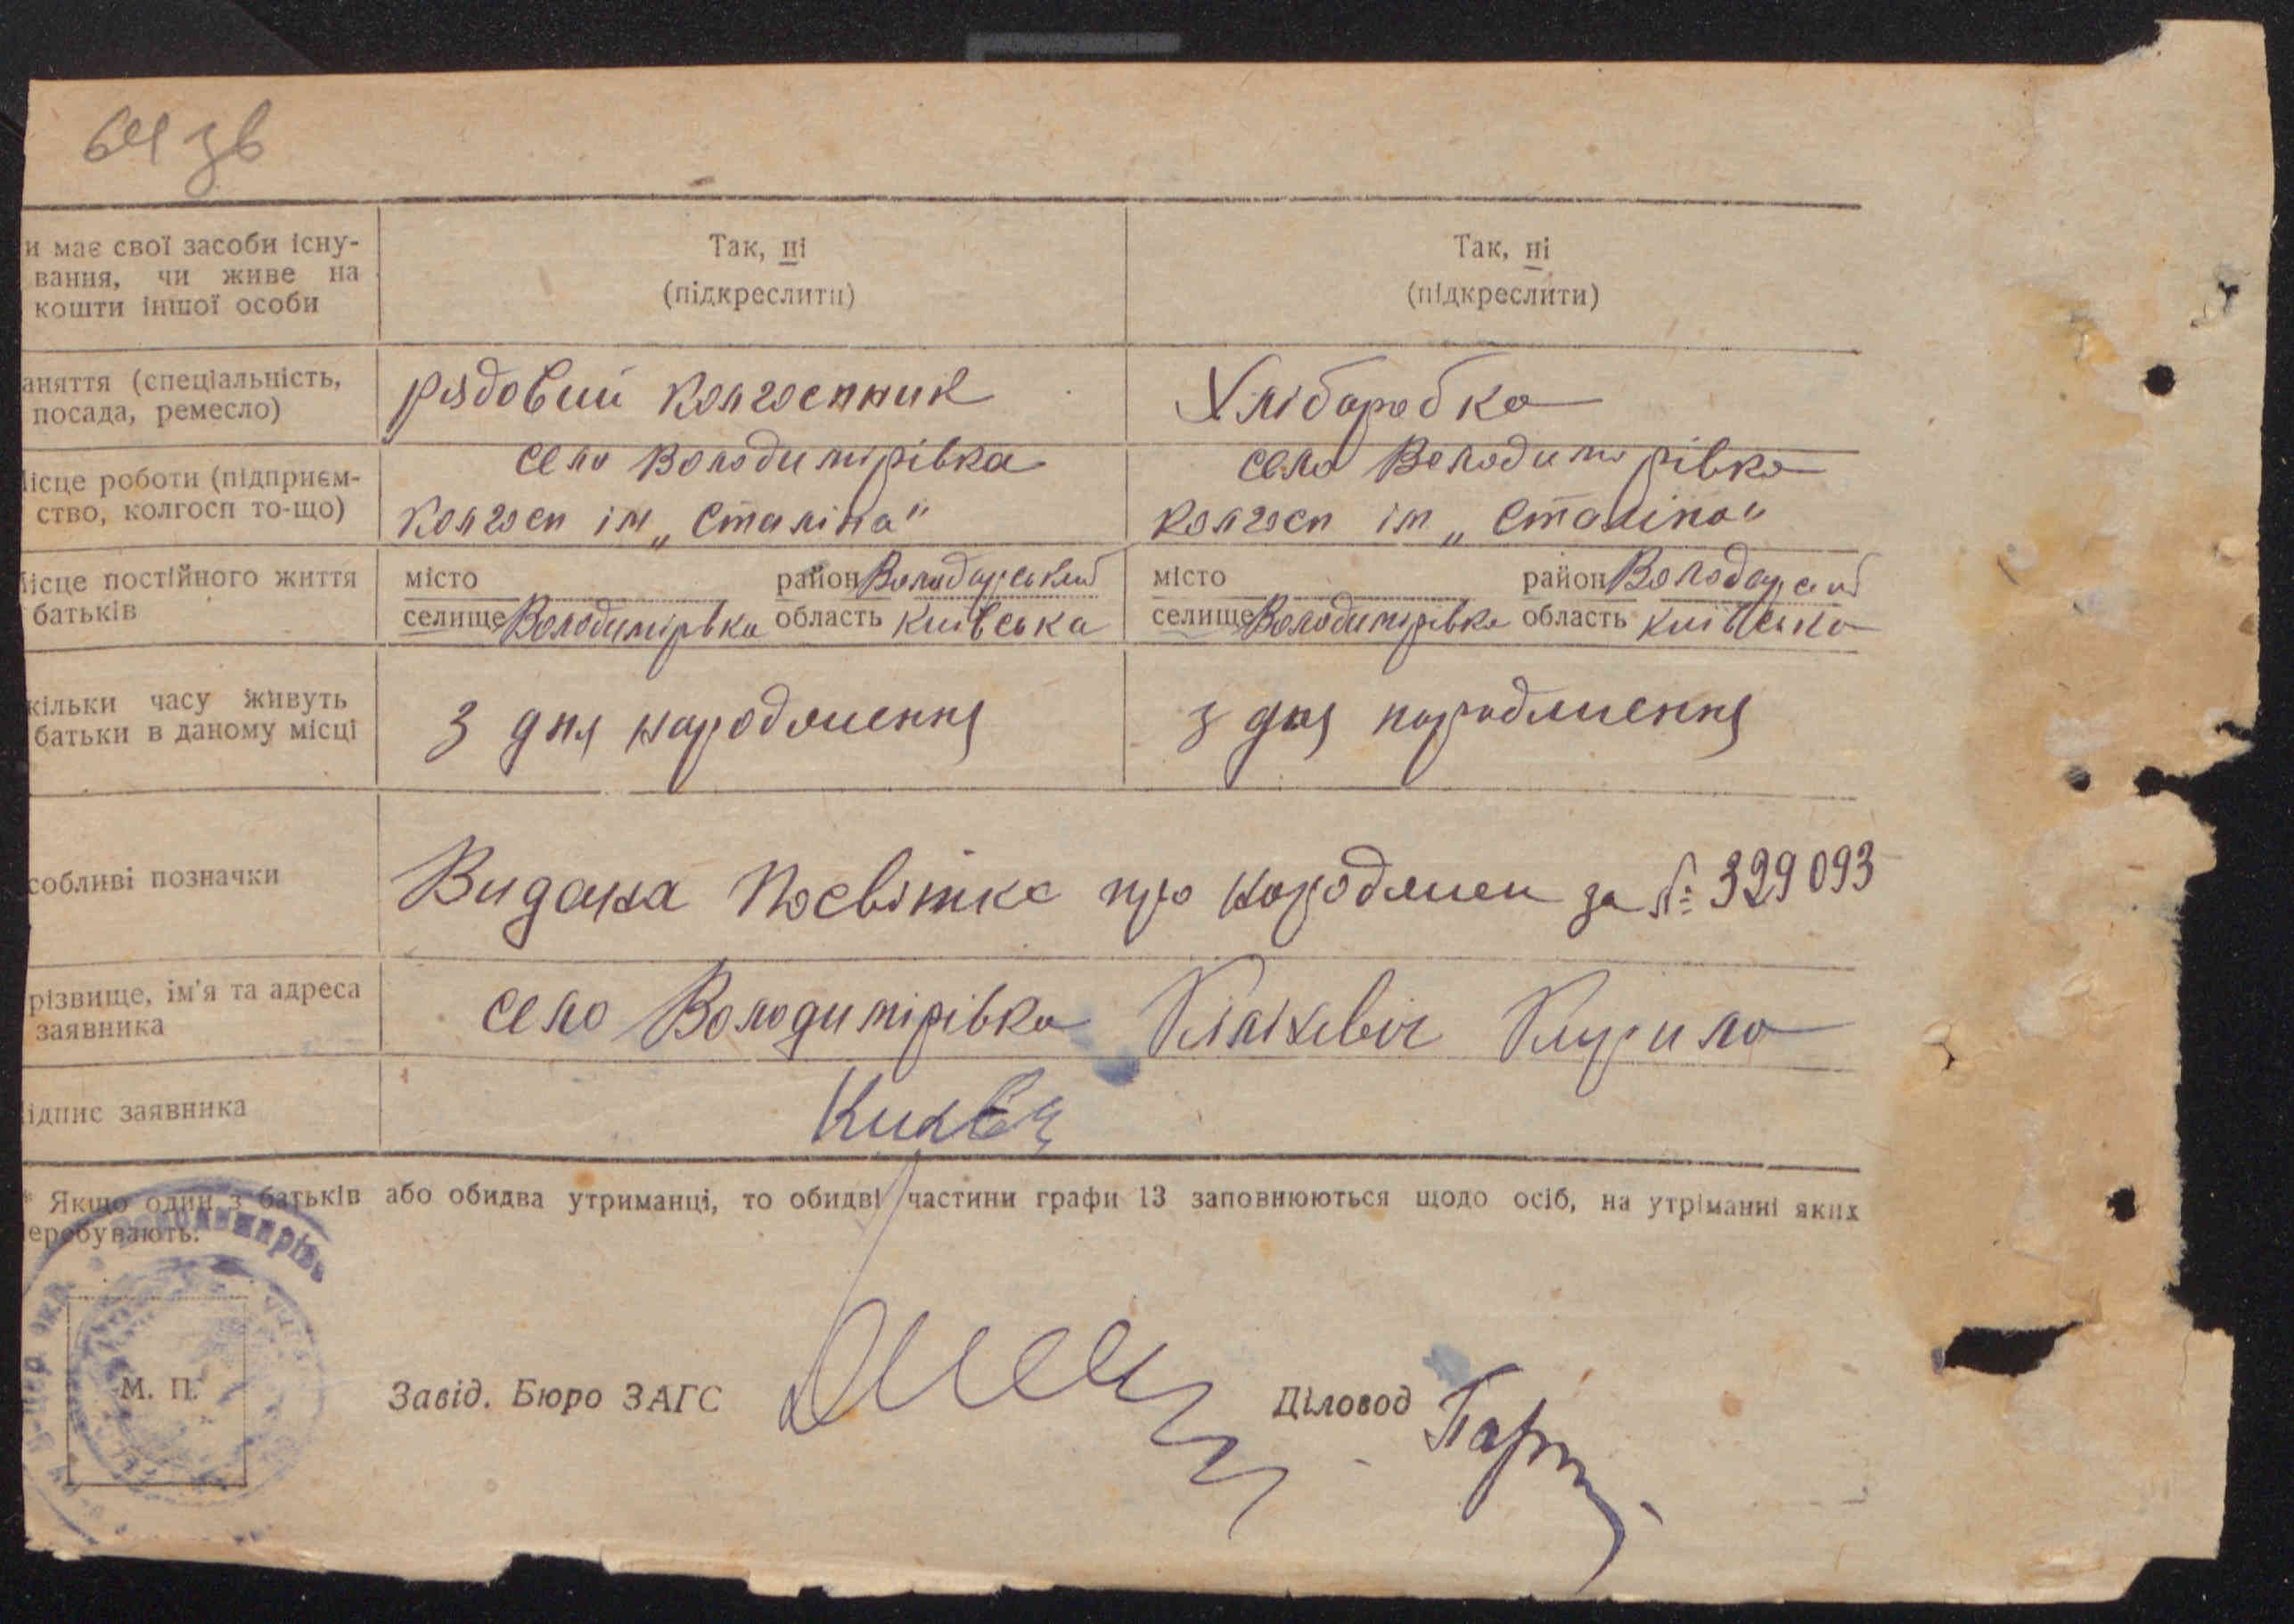 64 зв
и має свої засоби існу-
вання, чи живе на
кошти іншої особи
Так, ні
(підкреслити)
Так, ні
(підкреслити)
аняття (спеціальність,
посада, ремесло)
рядовий колгоспник
Хліборобка
ісце роботи (підприєм-
ство, колгосп то-що)
село Володимирівка
колгосп ім „Сталіна"
село Володимирівка
колгосп ім „Сталіна"
ісце постійного життя
батьків
місто район Володарський
селище Володимірівка область Київська
місто район
селище Володимірівка область Київська
кільки часу живуть
батьки в даному місці
З дня народження
з дня народження
собливі позначки
Видана Посвітка про народжен за № 329093
різвище, ім'я та адреса
заявника
село Володимірівка Кирило
ідпис заявника
* Якщо один з батьків або обидва утриманці, то обидві частини графи 13 заповнюються щодо осіб, на утріманні яких
еребувають.
М. П.
Завід. Бюро ЗАГС Діловод